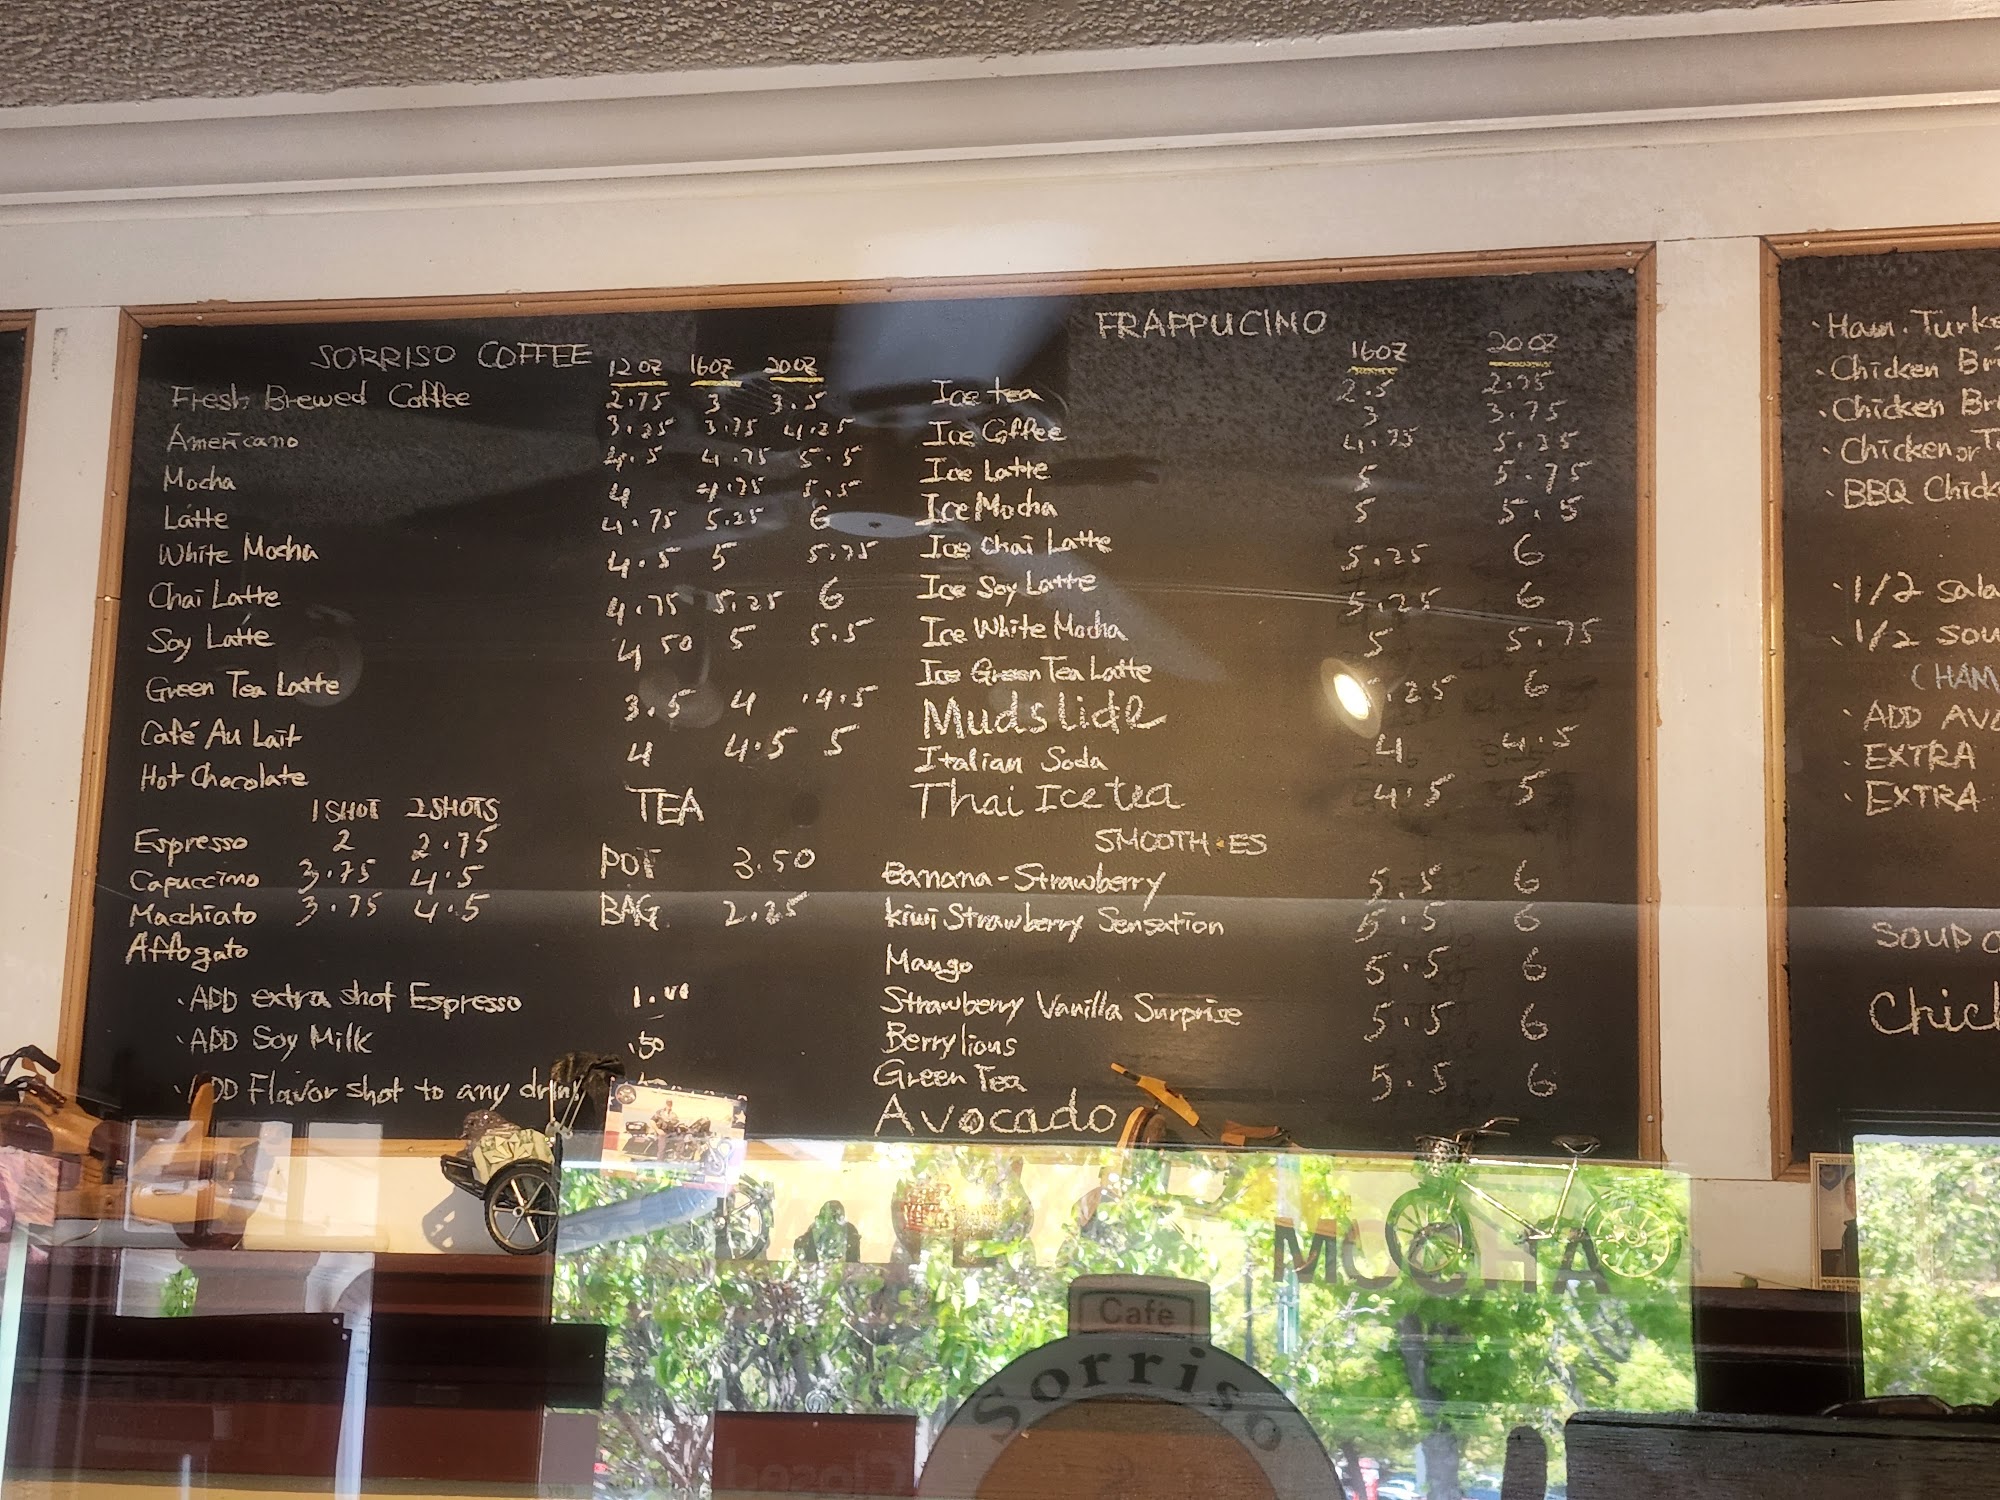 SORRISO COFFEE 12 OZ 16OZ 20OZ
Fresh Brewed Coffee 2.75 3 3.5
Americano 3.25 3.75 4.25
Mocha 4.5 4.75 5.5
Latte 4 4.75 5.5
White Mocha 4.75 5.25 6
Chai Latte 4.5 5 5.75
Soy Latte 4.75 5.25 6
Green Tea Latte 4.50 5 5.5
Café Au Lait 3.5 4 4.5
Hot Chocolate 4 4.5 5
1 SHOT 2 SHOTS
Espresso 2 2.75
Capuccino 3.75 4.5
Macchiato 3.75 4.5
Affogato
TEA
POT 3.50
BAG 2.25
• ADD extra shot Espresso
• ADD Soy Milk .50
• ADD Flavor shot to any drink
FRAPPUCINO
16OZ 20OZ
Ice tea 2.5 2.75
Ice Coffee 3 3.75
Ice Latte 4.75 5.25
Ice Mocha 5 5.75
Ice Chai Latte 5 5.5
Ice Soy Latte 5.25 6
Ice White Mocha 5.25 6
Ice Green Tea Latte 5 5.75
Mudslide .25 6
Italian Soda 4 4.5
Thai Ice tea 4.5 5
SMOOTHIES
Banana-Strawberry 5.5 6
kiwi Strawberry Sensation 5.5 6
Mango 5.5 6
Strawberry Vanilla Surprise 5.5 6
Berrylious
Green Tea 5.5 6
Avocado
• Ham. Turke
• Chicken Br
• Chicken Br
• Chicken or T
• BBQ Chick
• 1/2 Sala
• 1/2 sou
(HAM
• ADD AVO
• EXTRA
• EXTRA
SOUP
Chic
MOCHA
Café
Sorriso
Closed